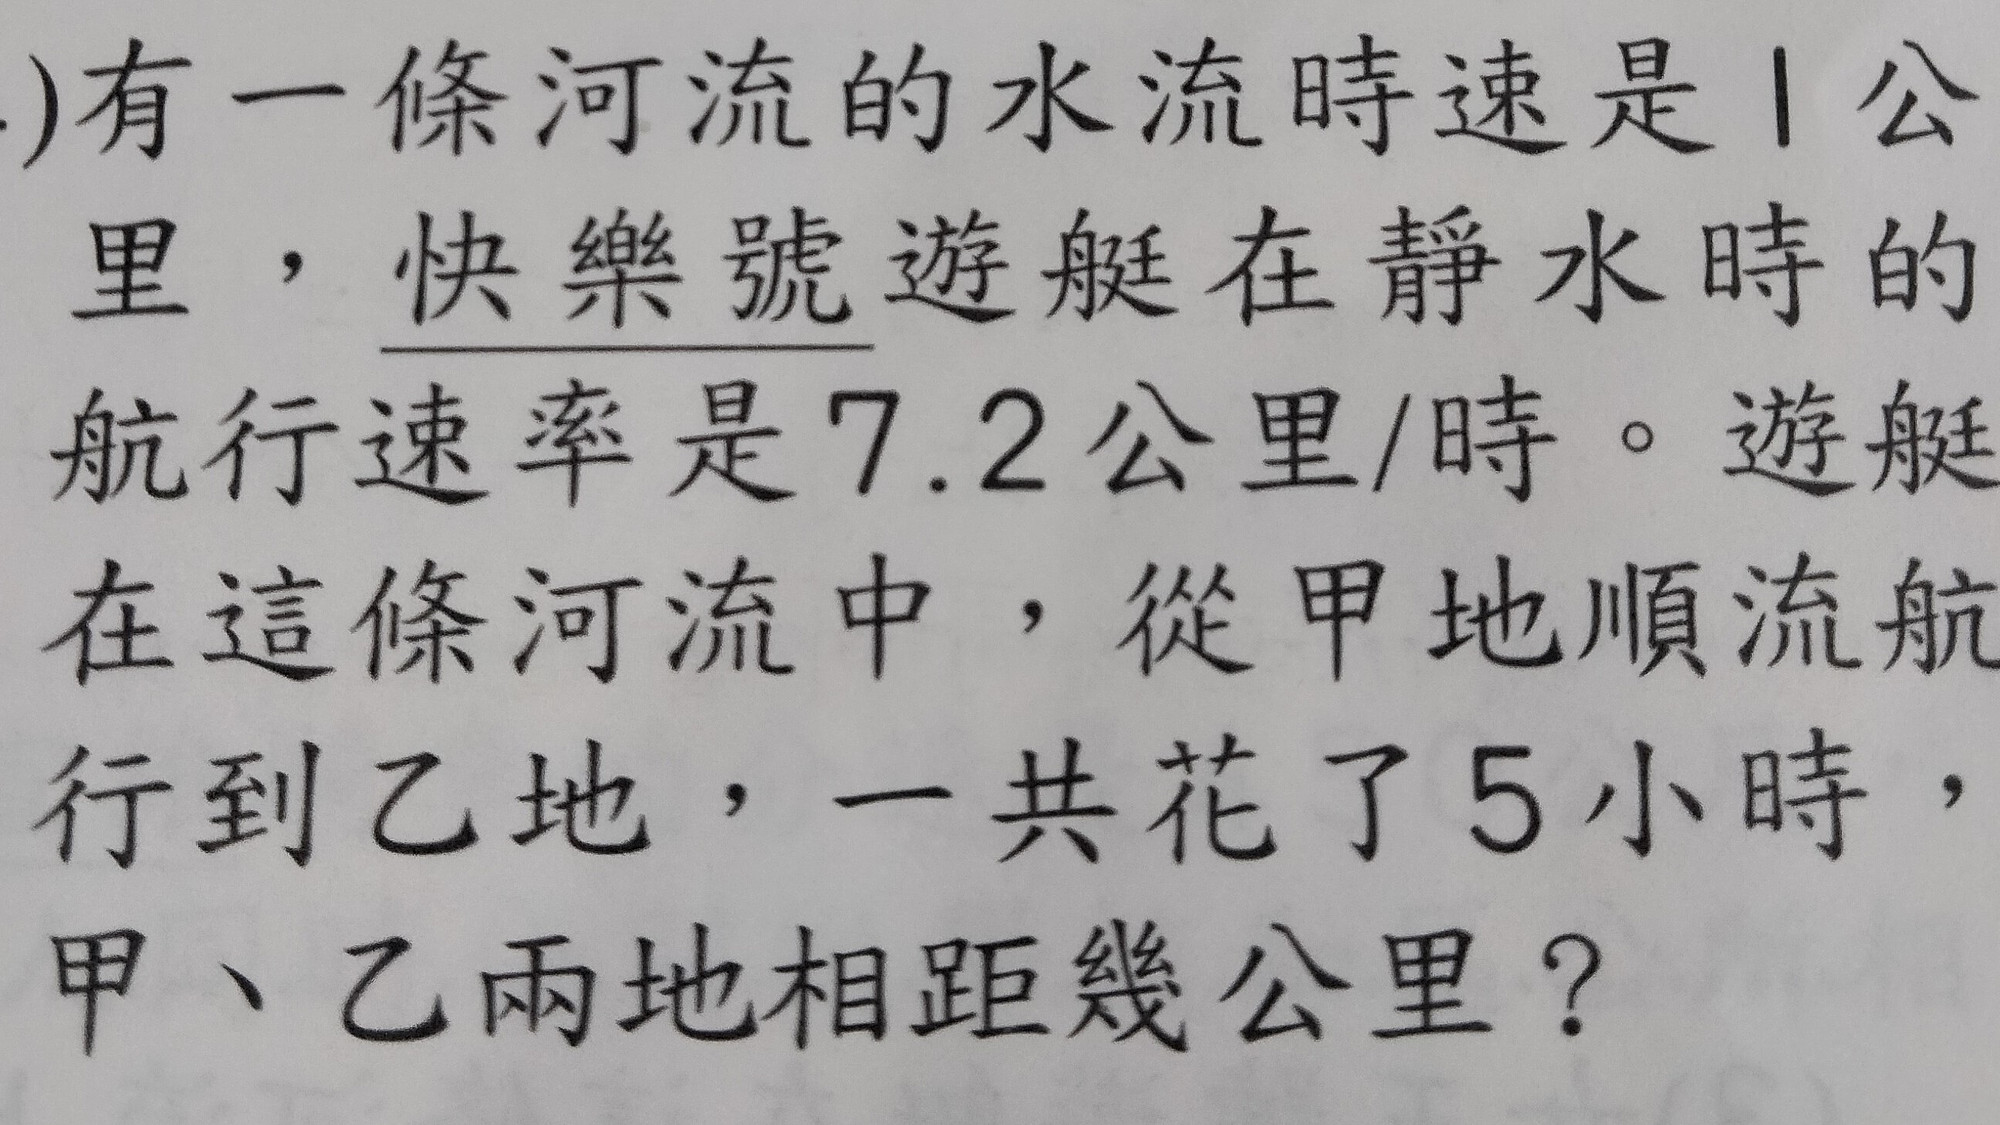 .)有一條河流的水流時速是1公
里，快樂號遊艇在靜水時的
航行速率是7.2公里/時。遊艇
在這條河流中，從甲地順流航
行到乙地，一共花了5小時，
甲、乙兩地相距幾公里？